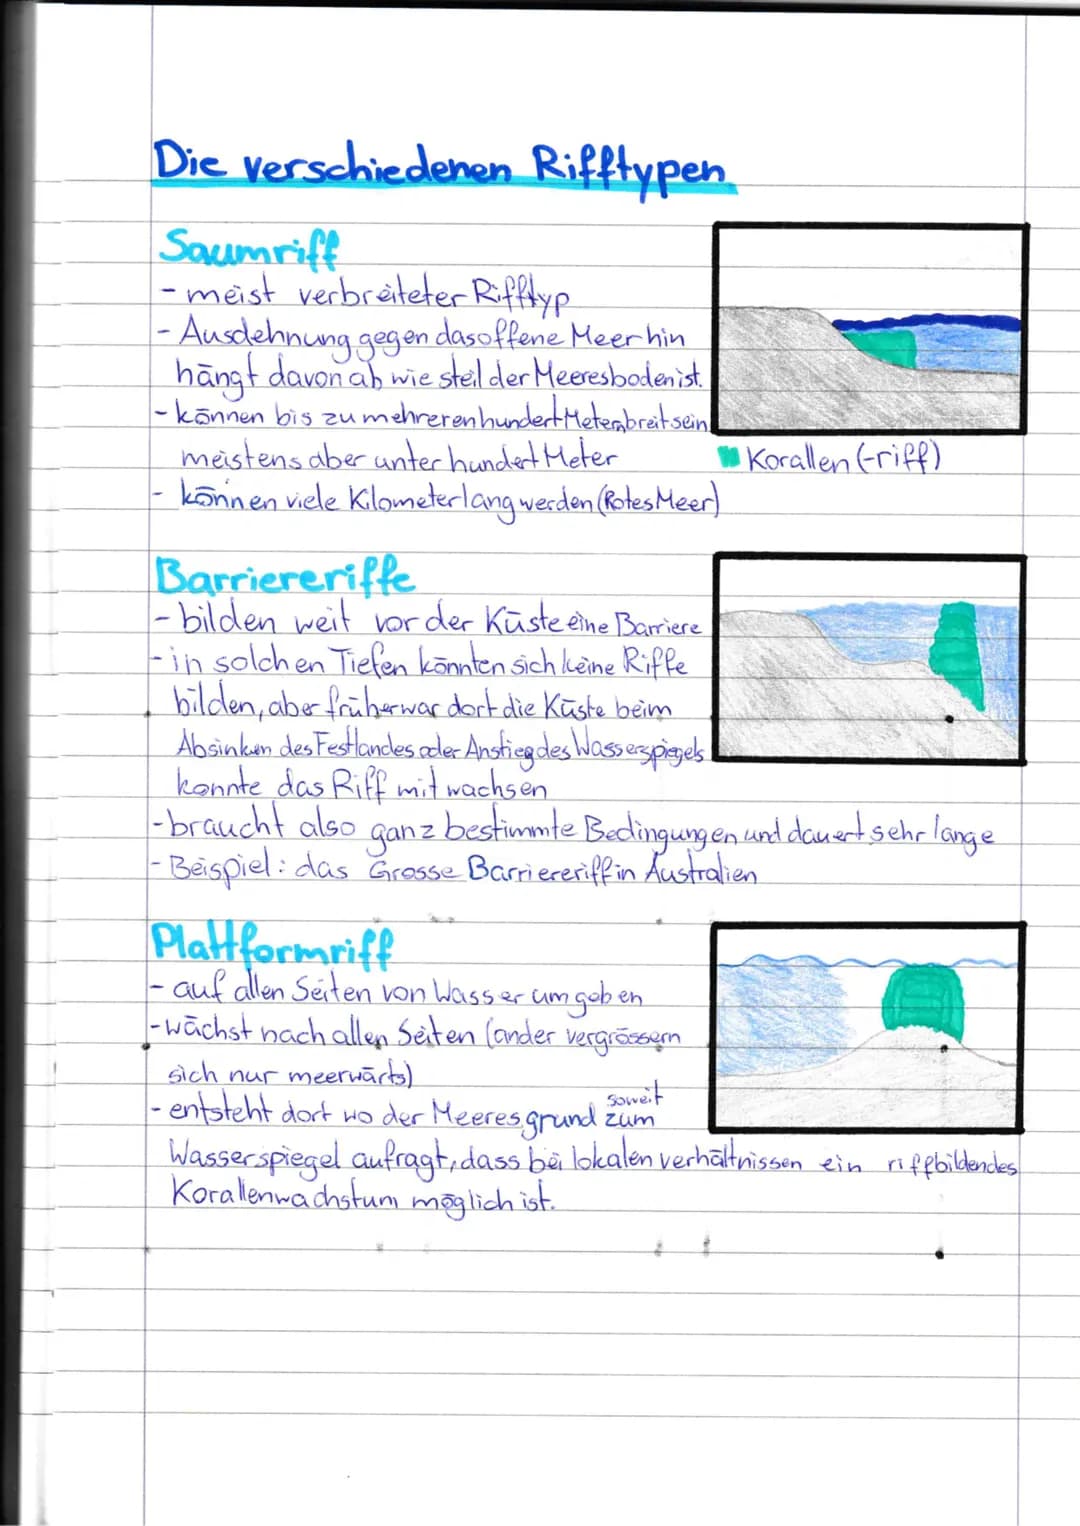 Die verschiedenen Rifftypen
Saumriff
- meist verbreiteter Rifftyp
- Ausdehnung gegen das offene Meer hin
hängt davon ab wie steil der Meeresboden ist.
- können bis zu mehreren hundert Metern breit sein
meistens aber unter hundert Meter
Korallen (-riff)
- können viele Kilometer lang werden (Rotes Meer)
Barriereriffe
- bilden weit vor der Küste eine Barriere
- in solchen Tiefen könnten sich keine Riffe
bilden, aber früher war dort die Küste beim
Absinken des Festlandes oder Anstieg des Wasserspiegels
konnte das Riff mit wachsen
- braucht also ganz bestimmte Bedingungen und dauert sehr lange
- Beispiel: das Grosse Barriereriff in Australien
Plattformriff
- auf allen Seiten von Wasser umgeben
- wächst nach allen Seiten (ander vergrössern
sich nur meerwärts)
- entsteht dort wo der Meeresgrund soweit zum
Wasserspiegel aufragt, dass bei lokalen verhältnissen ein riffbildendes
Korallenwachstum möglich ist.